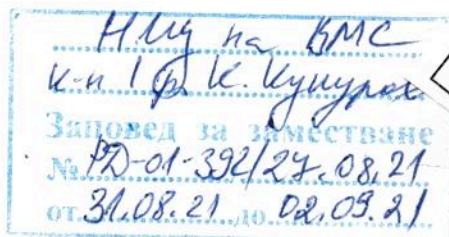 НЩ на ВМС
к-н I р. К. Кунурох
Заповед за заместване
№ РД-01-392/27.08.21
от 31.08.21 до 02.09.21